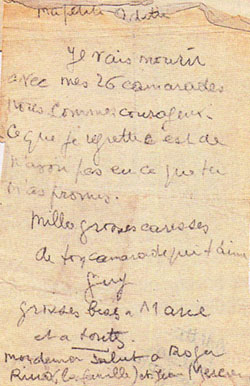 Ma petite Odette
Je vais mourir
avec mes 26 camarades
nous sommes courageux.
Ce que je regrette c'est de
n'avoir pas eu ce que tu
m'as promis.
Mille grosses caresses
de ton camarade qui t'aime
Guy
grosses bises a Marie
et a toute
mon dernier salut a Roger
Rino (la famille)